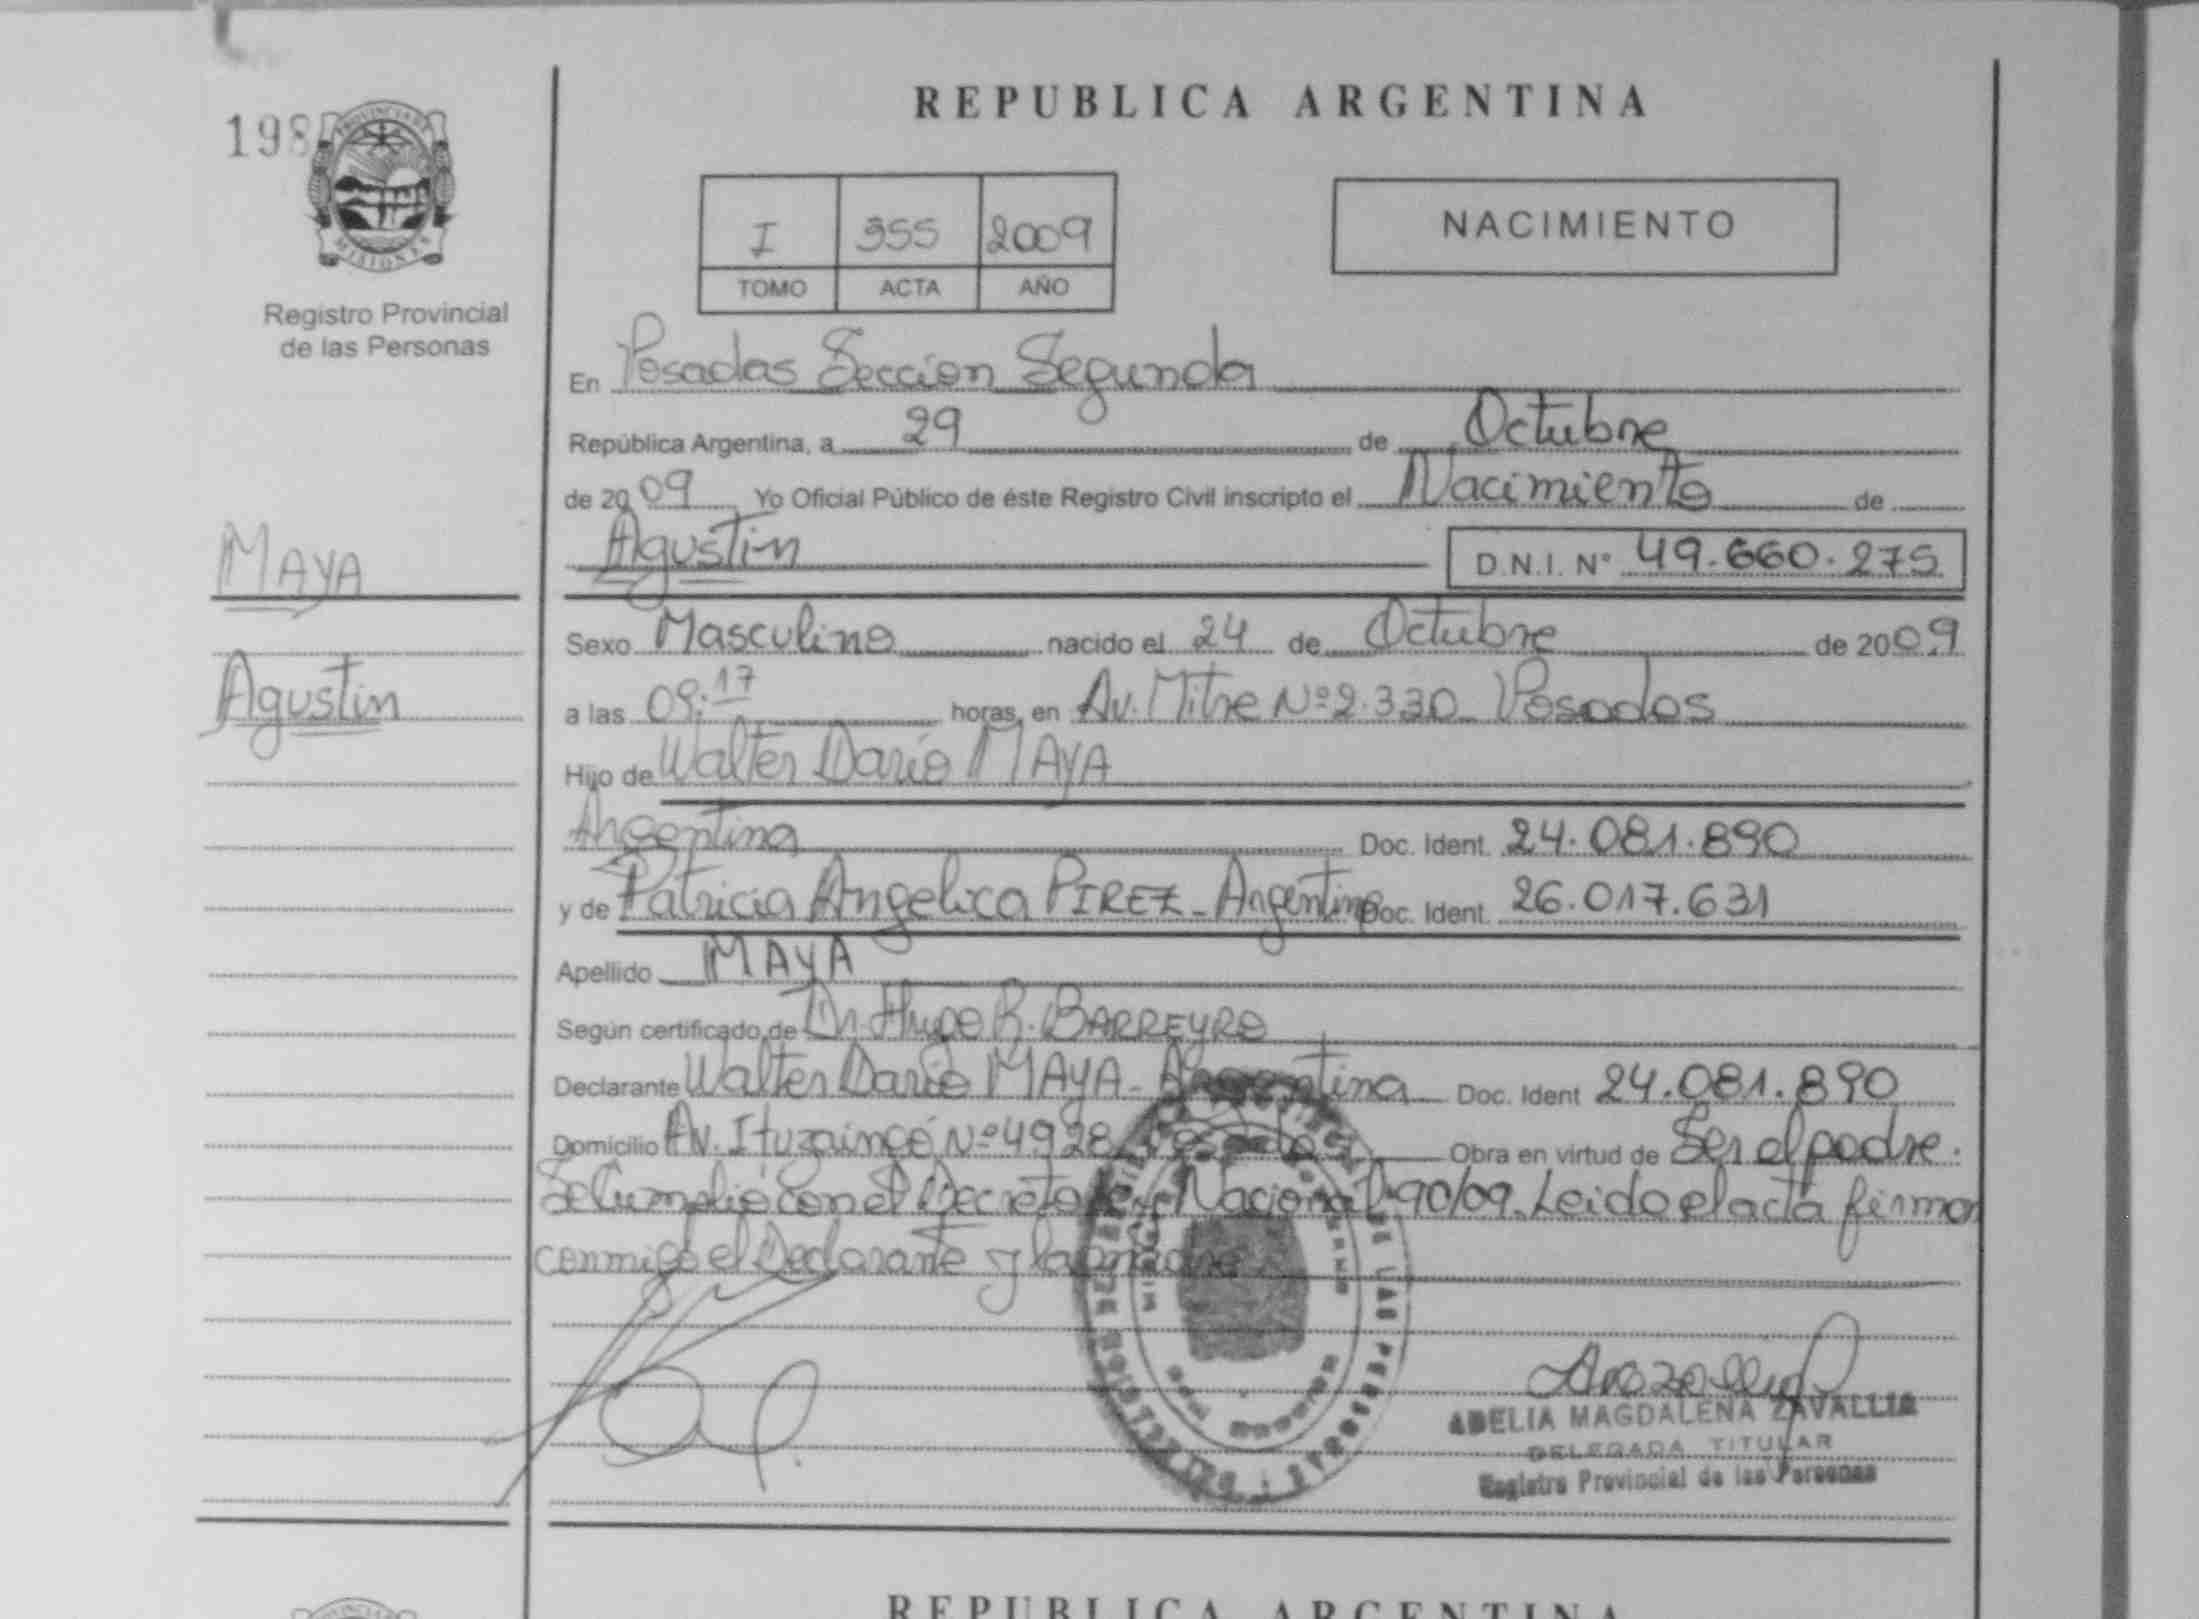 REPUBLICA ARGENTINA
198
PROVINCIA DE
MISIONES
Registro Provincial
de las Personas
I 355 2009
TOMO ACTA AÑO
NACIMIENTO
En Posadas Seccion Segunda
República Argentina, a 29 de Octubre
de 2009 Yo Oficial Público de éste Registro Civil inscripto el Nacimiento de
MAYA
Agustin
Agustin D.N.I. N° 49.660.275
Sexo Masculino nacido el 24 de Octubre de 2009
a las 09:17 horas, en Av. Mitre Nº 2.330 Posadas
Hijo de Walter Dario MAYA
Argentina Doc. Ident. 24.081.890
y de Patricia Angelica PIREZ - Argentina Doc. Ident. 26.017.631
Apellido MAYA
Según certificado de Dr. Hugo R. BARREYRO
Declarante Walter Dario MAYA - Argentina Doc. Ident 24.081.890
Domicilio Av. Ituzaingó Nº 4928 Posadas Obra en virtud de Ser el padre.
Se Cumplió con el Decreto Nacional 90/09. Leido el acta firman
conmigo el Declarante y la madre
ADELIA MAGDALENA ZAVALLIA
DELEGADA TITULAR
Registro Provincial de las Personas
REPUBLICA ARGENTINA